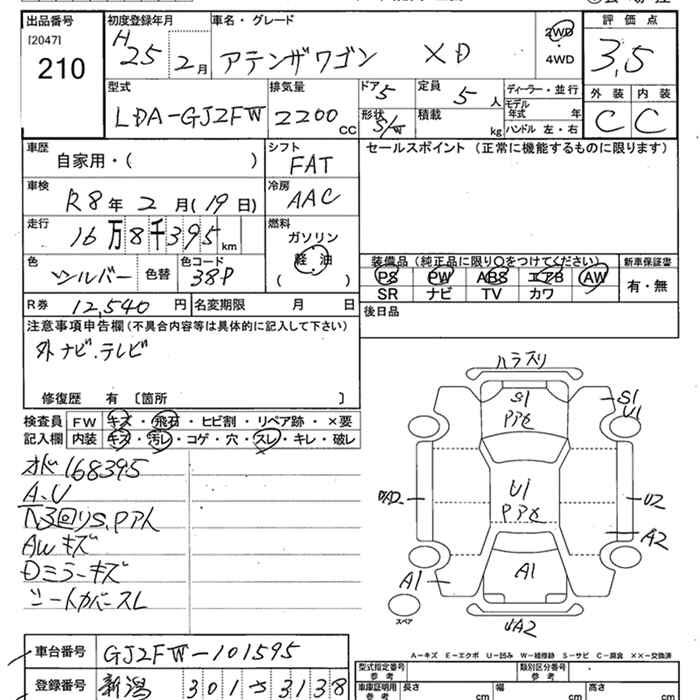 出品番号
[2047]
210
初度登録年月
H25年 2月
車名・グレード
アテンザワゴン XD
2WD
・
4WD
評価点
3,5
型式
LDA-GJ2FW
排気量
2200 CC
ドア
5
形状
S/W
定員
5人
積載
kg
ディーラー・並行
モデル年式 年
ハンドル 左・右
外装 内装
C C
車歴
自家用・( )
シフト
FAT
セールスポイント (正常に機能するものに限ります)
車検
R8年 2月(19日)
冷房
AAC
走行
16万8千395 km
燃料
ガソリン
軽・油
( )
色
シルバー
色替
色コード
38P
装備品 (純正品に限り○をつけてください)
PS PW ABS エアB AW
SR ナビ TV カワ
新車保証書
有・無
R券 12,540円
名変期限 月 日
後日品
注意事項申告欄(不具合内容等は具体的に記入して下さい)
外ナビ.テレビ
修復歴 有 〔箇所 〕
検査員記入欄
FW キズ・飛石・ヒビ割・リペア跡・×要
内装 キズ・汚レ・コゲ・穴・スレ・キレ・破レ
168395
A、U
AWキズ
Dミラーキズ
シートカバースレ
S1
S1
U1
U1
U2
A2
A1
A1
UA2
スペア
A-キズ E-エクボ U-凹み W-補修跡 S-サビ C-腐食 XX-交換済
車台番号 GJ2FW-101595
登録番号 新潟 301 さ 3138
型式指定番号 参考
類別区分番号 参考
車庫証明用 参考
長さ cm
幅 cm
高さ cm